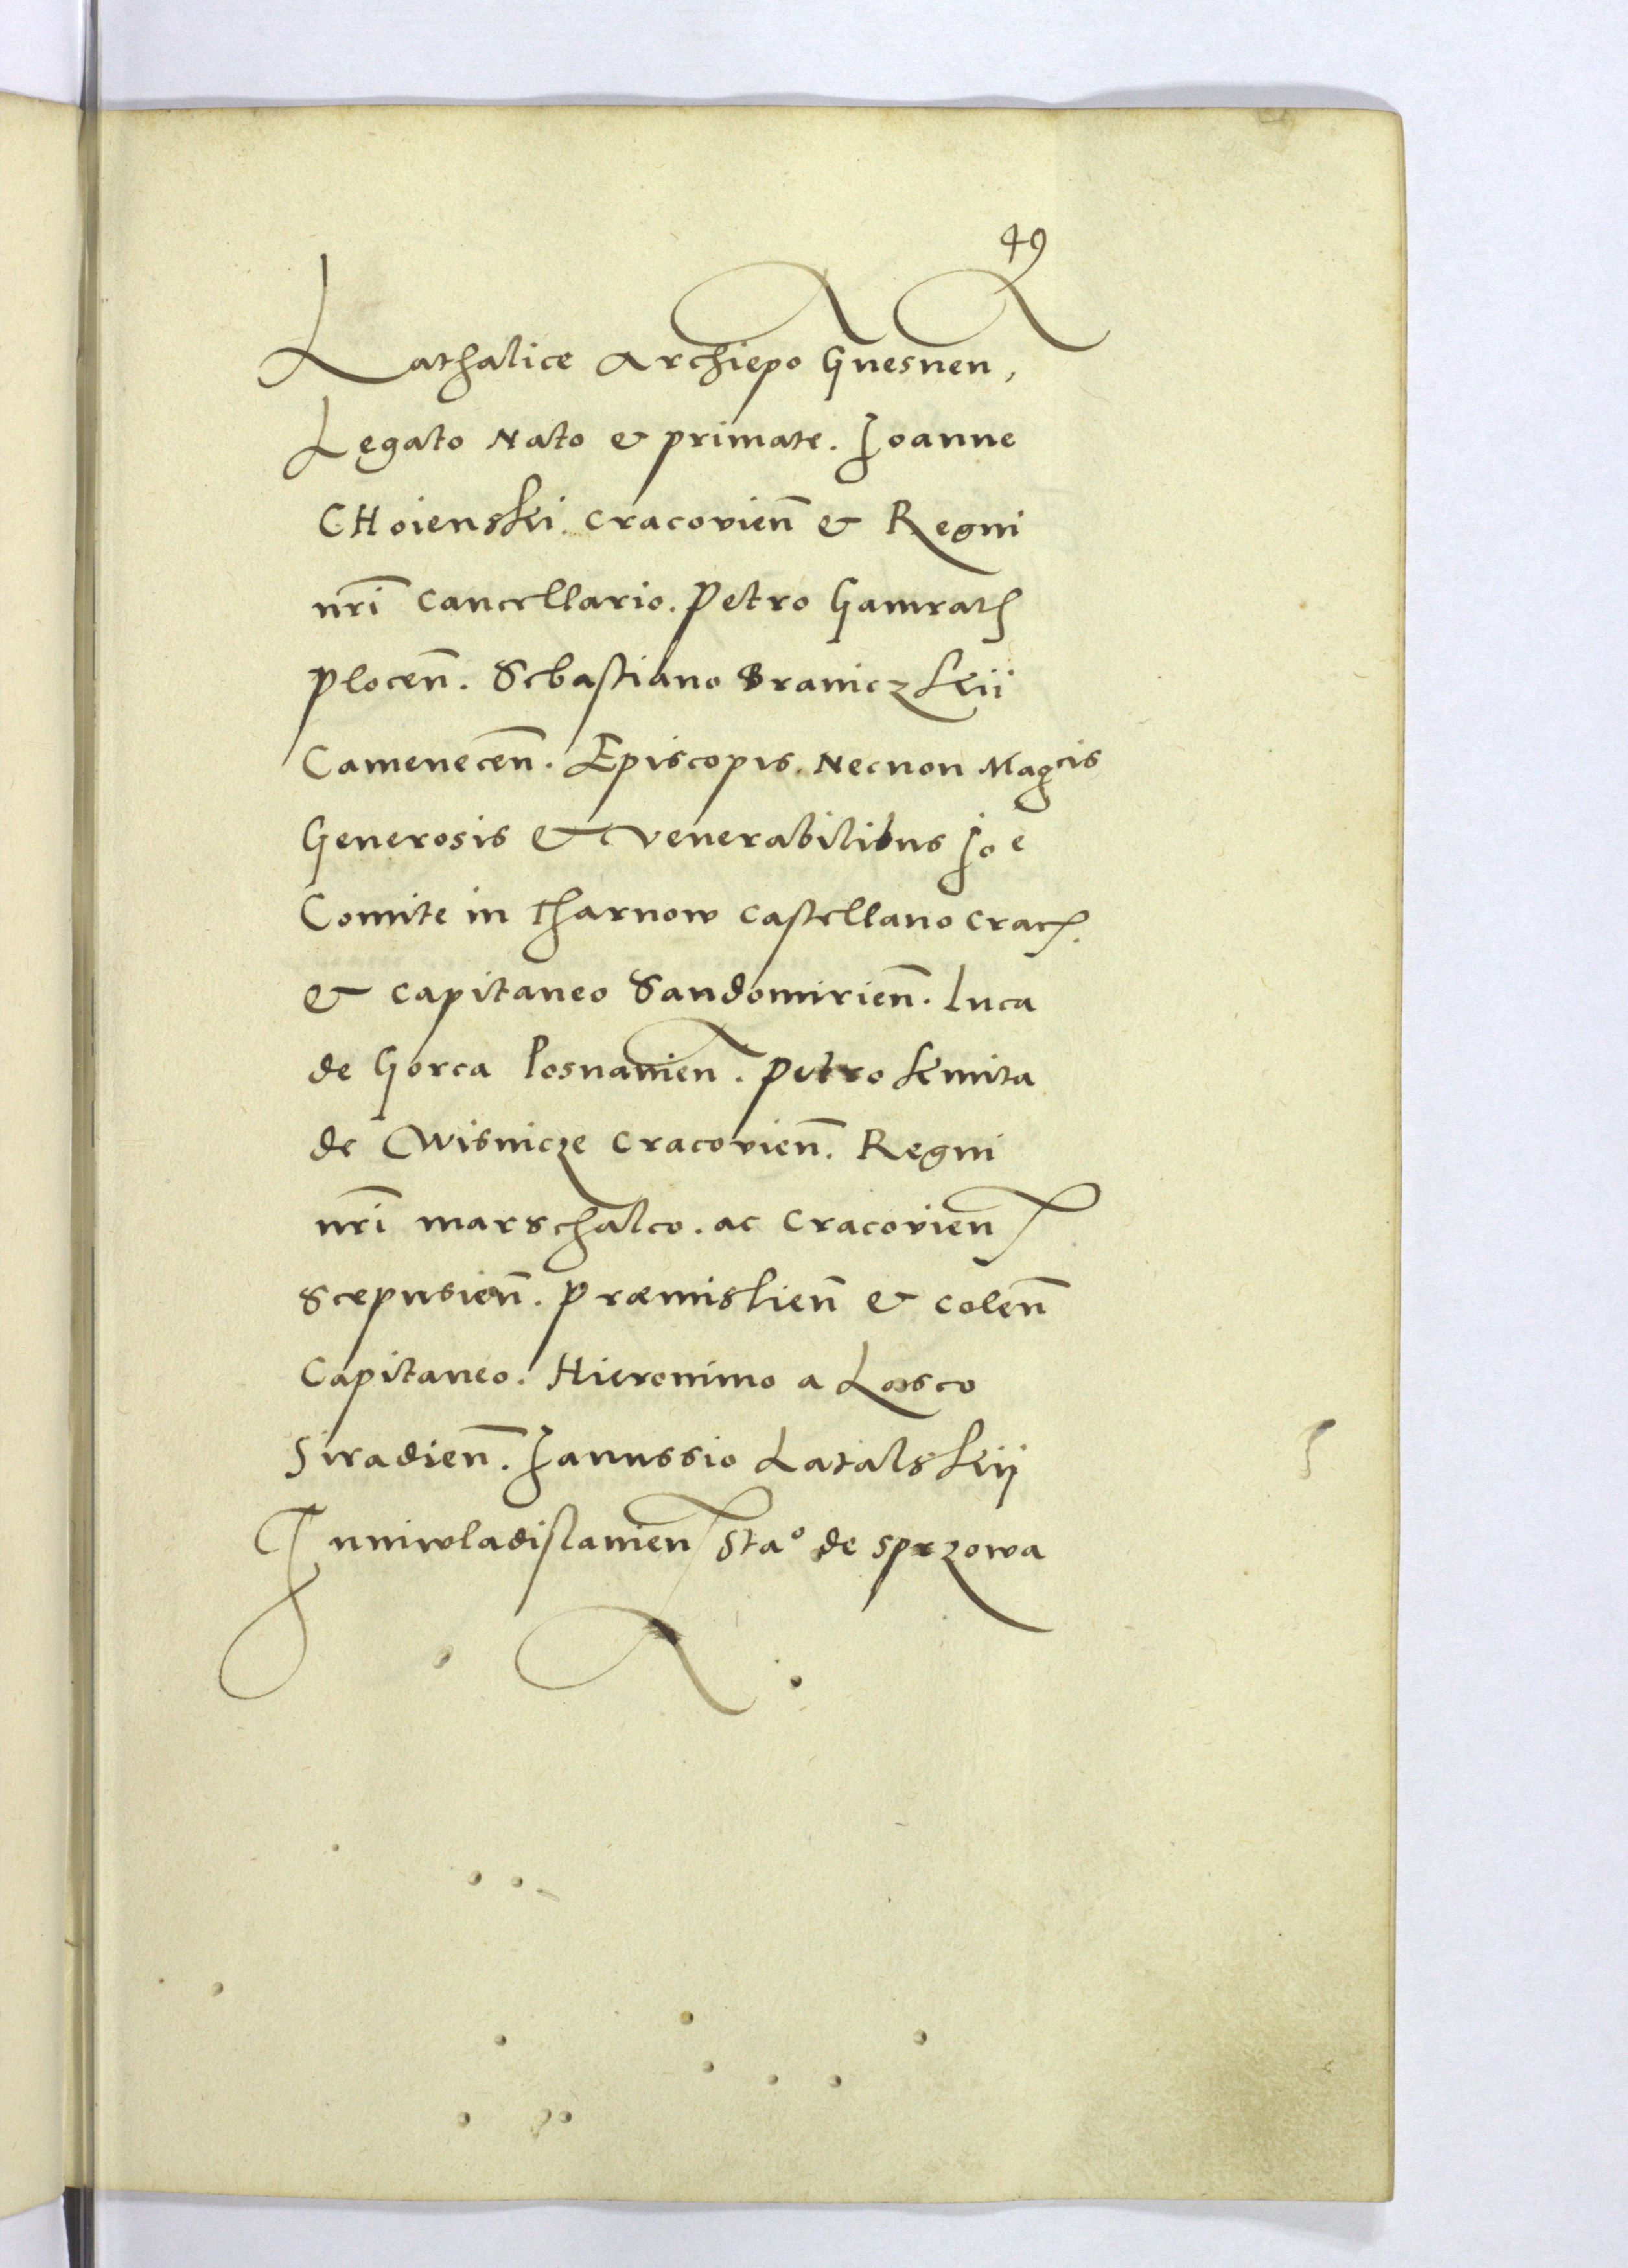 49
Lathalice Archiepo Gnesnen,
Legato Nato & primate. Joanne
CHoienski. cracovień & Regni
nr̄i cancellario. Petro Gamrath
plocen̄. Sebastiano Braniczkii
Camenecen̄. Episcopis. Necnon Magcis
Generosis & venerabilibus Joe
Comite in tharnow castellano Crac.
& capitaneo Sandomirien̄. Luca
de Gorca Posnanien. Petro kmita
de Wisnicze cracovien̄. Regni
nr̄i marschalco. ac cracovien
Scepusien̄. Præmislien̄ & colen̄
Capitaneo. Hieronimo a Lasco
Siradien̄. Janussio Latalskij
Juniwladislauien Stao de sprzowa